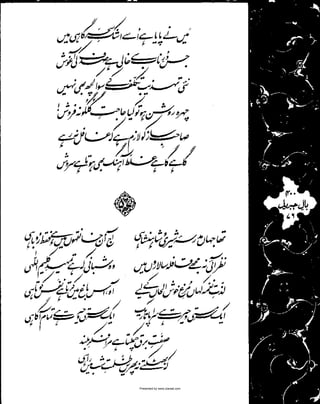 میں نے پایا ہے اسے اشکِ سحرگاہی میں
جس دُرِ ناب سے خالی ہے صدف کی آغوش
نئی تہذیب تکلّف کے سوا کچھ بھی نہیں
چہرہ روشن ہو تو کیا حاجتِ گلگونہ فروش!
صاحبِ ساز کو لازم ہے کہ غافل نہ رہے
گاہے گاہے غلط آہنگ بھی ہوتا ہے سروش
تھا جہاں مدرسۂ شیری و شاہنشاہی
آج ان خانقہوں میں ہے فقط روباہی
نظر آئی نہ مجھے قافلہ سالاروں میں
وہ شبانی کہ ہے تمہیدِ کلیم اللّٰہی
لذّتِ نغمہ کہاں مرغِ خوش الحاں کے لیے
آہ، اس باغ میں کرتا ہے نفس کوتاہی
ایک سرمستی و حیرت ہے سراپا تاریک
ایک سرمستی و حیرت ہے تمام آگاہی
صفتِ برق چمکتا ہے مرا فکرِ بلند
کہ بھٹکتے نہ پھریں ظلمتِ شب میں راہی
بالِ جبریل
Presented by www.ziaraat.com